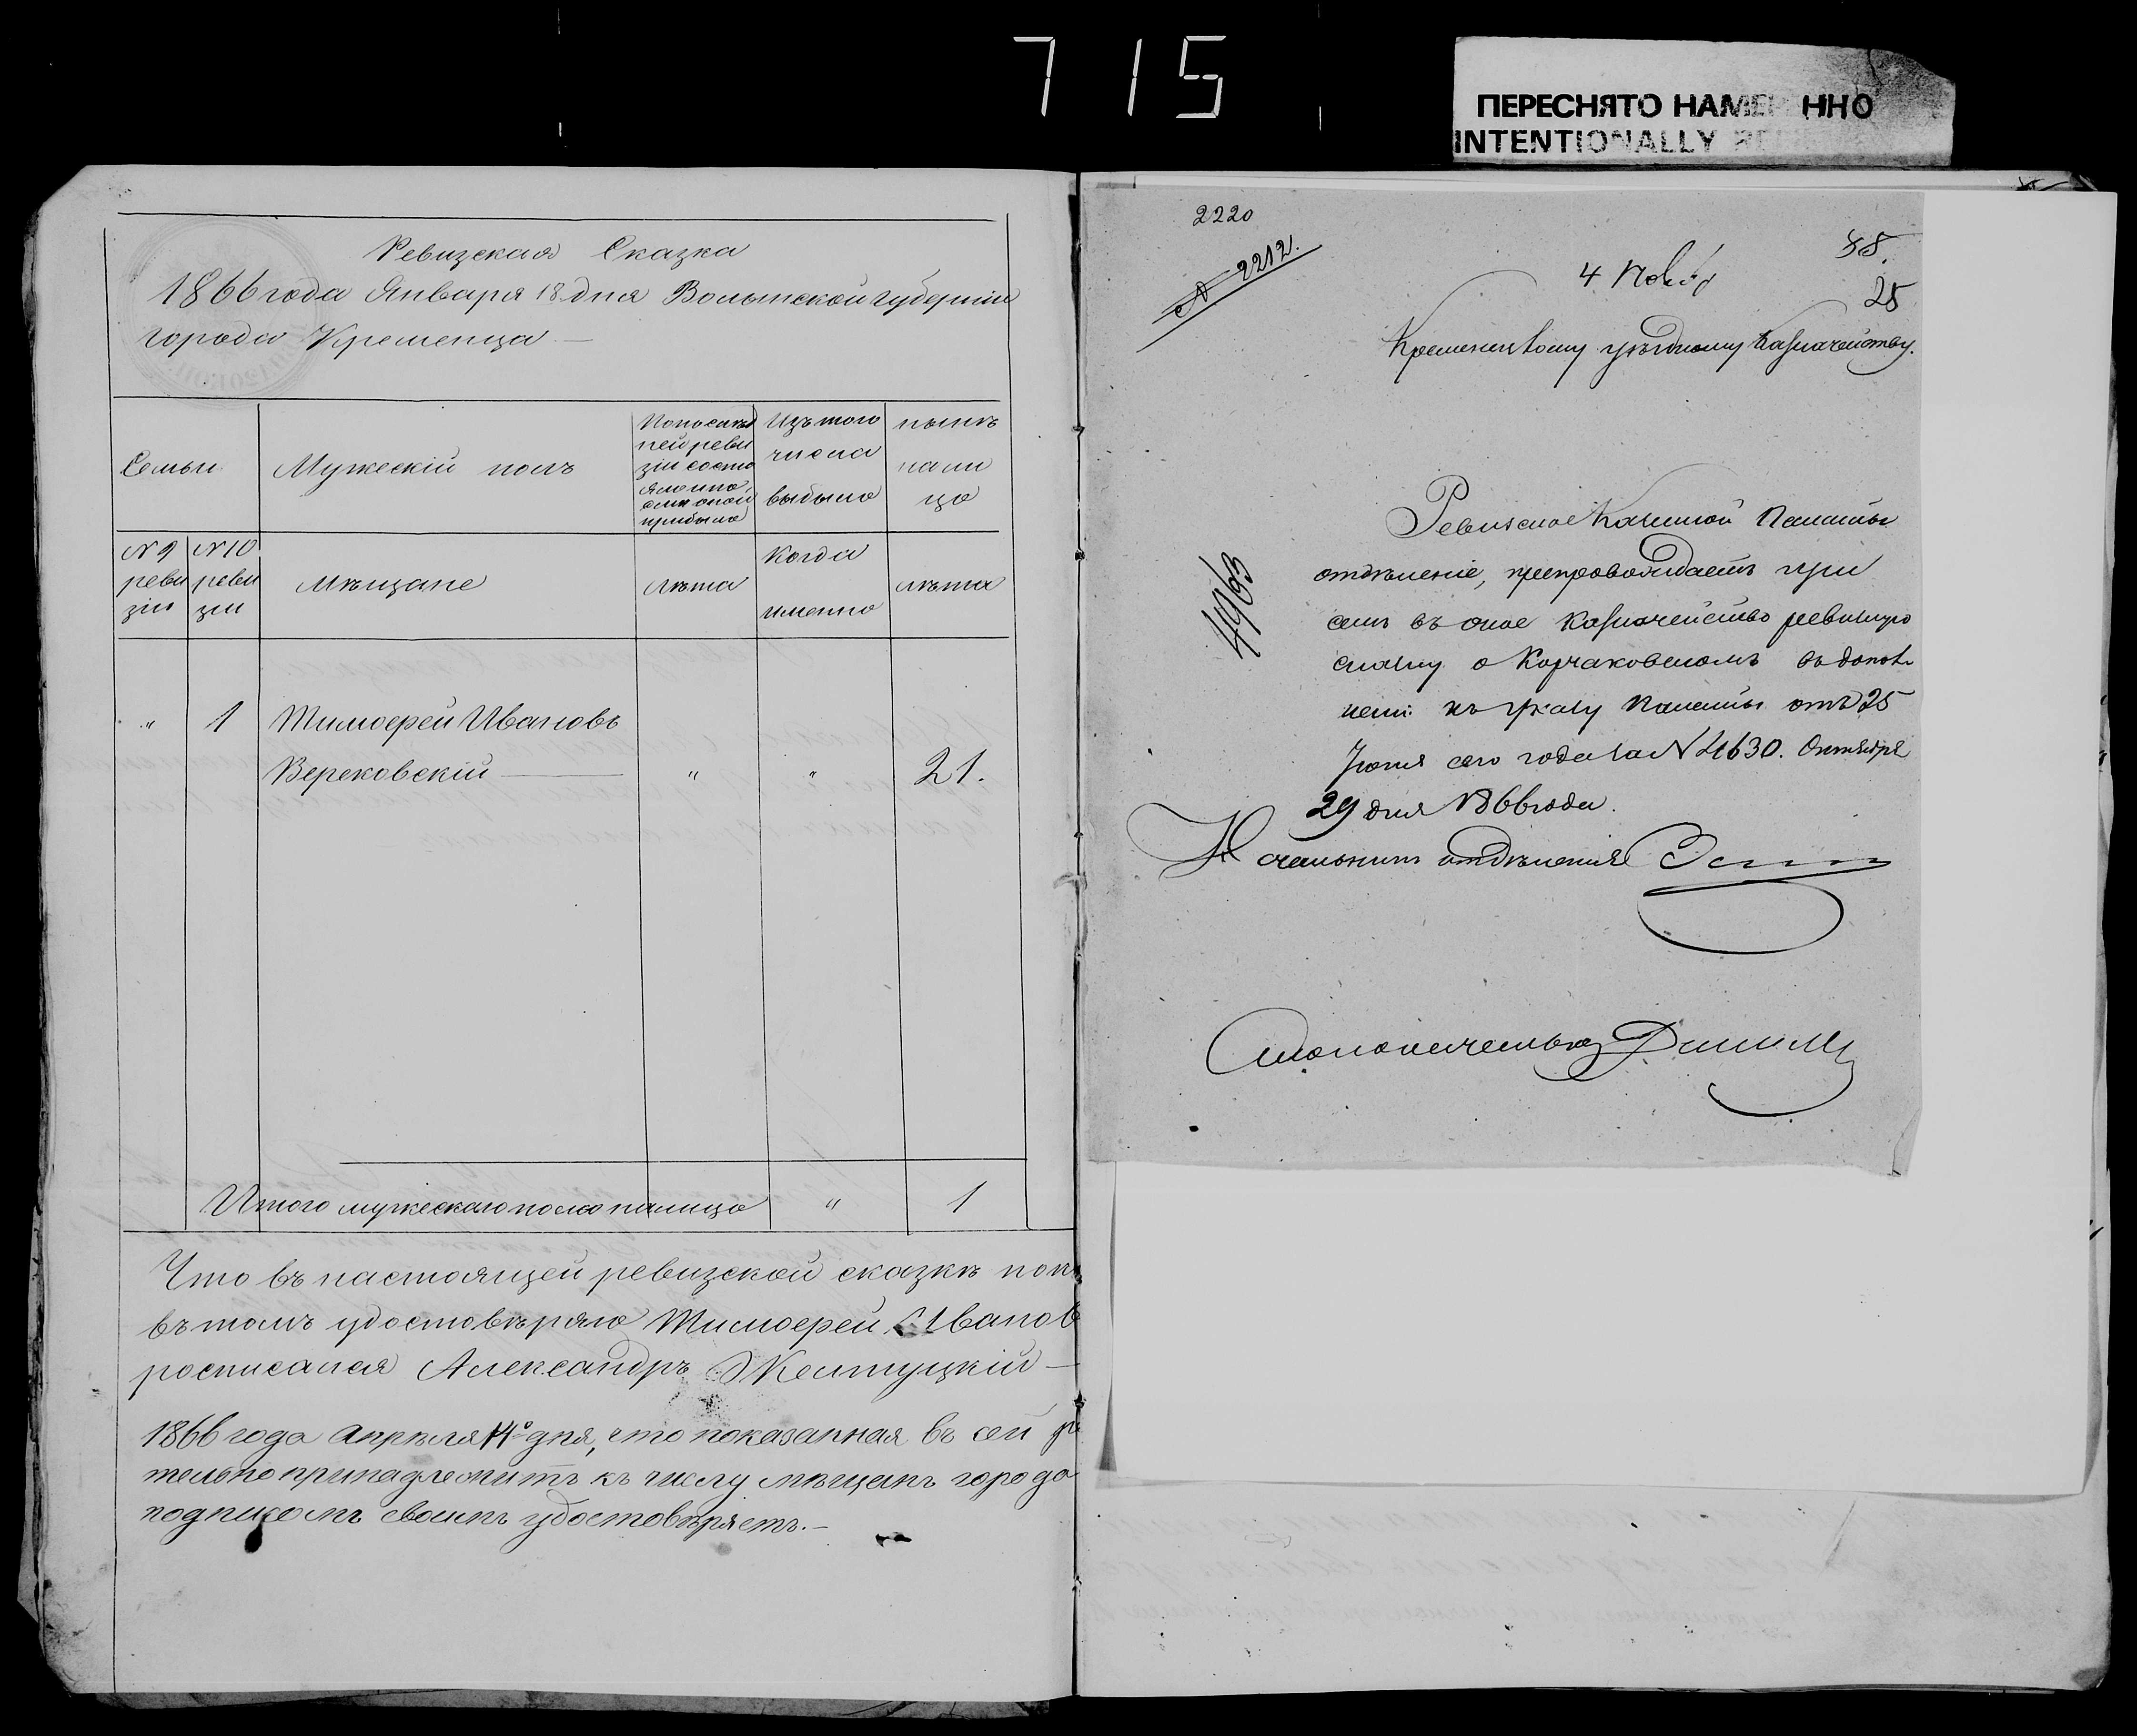 715
ПЕРЕСНЯТО НАМЕ ННО
INTENTIONALLY RE
Ревизская Сказка
1866 года Января 18 дня Волынской губерніи
города Кременца —
Семьи
Мужескій полъ
По послѣд
ней реви
зіи состо
яло и по
слѣ оной
прибыло
Изъ того
числа
выбыло
нынѣ
на ли
цо
N 9
реви
зіи
N 10
реви
зіи
Мѣщане
лѣта
Когда
именно
лѣта
" 1 Тимофей Ивановъ
Верековскій — " " 21.
Итого мужескаго пола налицо " 1
Что въ настоящей ревизской сказкѣ пок
въ томъ удостовѣряю Тимофей Иванов
росписался Александръ Желтуцкій —
1866 года Апрѣля 14 дня, что показанная въ сей ре
тельно принадлежитъ къ числу мѣщанъ города
подписомъ своимъ удостовѣряетъ. —
2220
N 2212.
38.
4 Нояб
25
Кременецкому уѣздному Казначейству.
4963
Ревизское Казенной Палаты
отдѣленіе, препровождаетъ при
семъ въ оное Казначейство ревизскую
сказку о Корчаковскомъ въ допол
неніи къ указу Палаты отъ 25
Іюня сего года за N 21630. Октября
29 дня 1866 года.
Начальникъ отдѣленія
Столоначальникъ